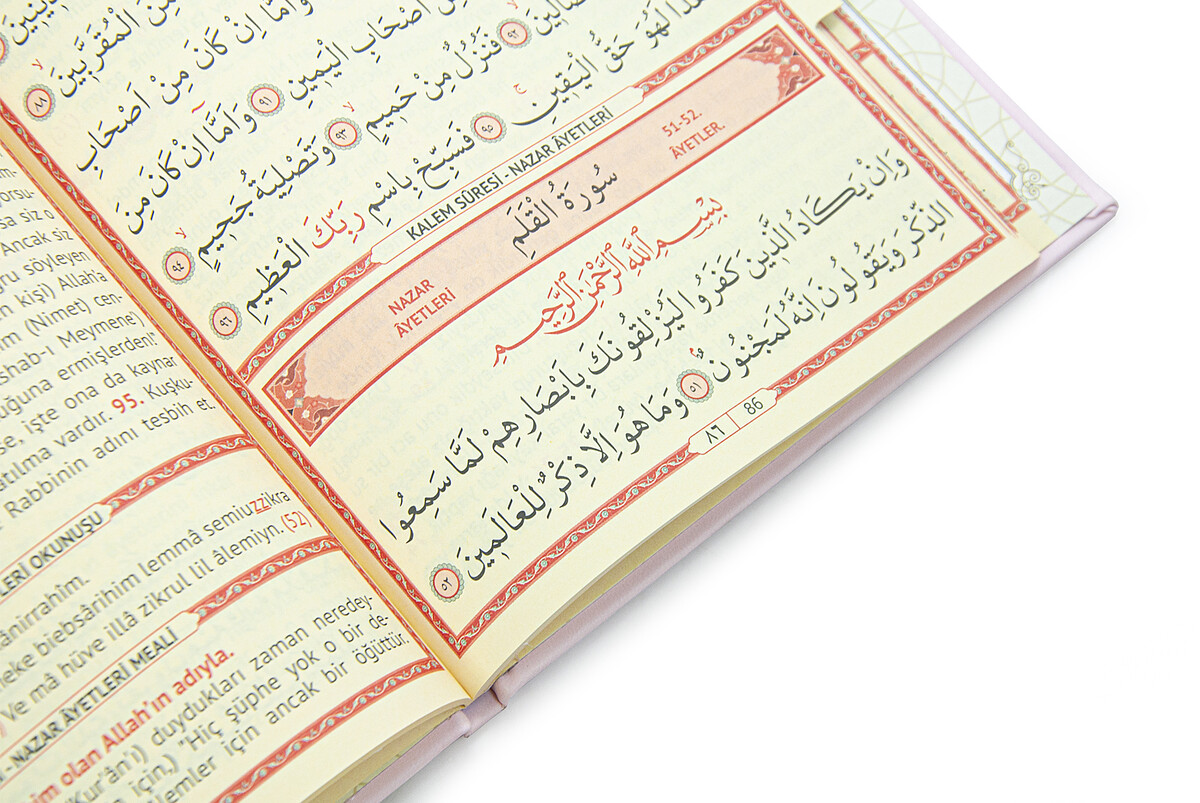 وَاَمَّٓا اِنْ كَانَ مِنَ الْمُقَرَّبِينَ ﴿٨٨﴾
وَاَمَّٓا اِنْ كَانَ مِنْ اَصْحَابِ
مِنْ اَصْحَابِ الْيَمِينِ ﴿٩١﴾ وَاَمَّٓا اِنْ كَانَ مِنَ
﴿٩٢﴾ فَنُزُلٌ مِنْ حَمِيمٍ ﴿٩٣﴾ وَتَصْلِيَةُ جَحِيمٍ ﴿٩٤﴾
لَهُوَ حَقُّ الْيَقِينِ ﴿٩٥﴾ فَسَبِّحْ بِاسْمِ رَبِّكَ الْعَظِيمِ ﴿٩٦﴾
KALEM SÛRESİ - NAZAR ÂYETLERİ
51-52.
ÂYETLER.
سُورَةُ الْقَلَمِ
NAZAR
ÂYETLERİ
بِسْمِ اللّٰهِ الرَّحْمٰنِ الرَّحِيمِ
وَاِنْ يَكَادُ الَّذِينَ كَفَرُوا لَيُزْلِقُونَكَ بِاَبْصَارِهِمْ لَمَّا سَمِعُوا
الذِّكْرَ وَيَقُولُونَ اِنَّهُ لَمَجْنُونٌ ﴿٥١﴾ وَمَا هُوَ اِلَّا ذِكْرٌ لِلْعَالَمِينَ ﴿٥٢﴾
٨٦ 86
sa siz o
Ancak siz
söyleyen
kişi) Allah'a
(Nimet) cen-
Ashab-ı Meymene)
ermişlerden!
işte ona da kaynar
atılma vardır. 95. Kuşku-
Rabbinin adını tesbih et.
OKUNUŞU
biebsârihim lemmâ semiuzzikra
Ve mâ hüve illâ zikrul lil âlemiyn. (52)
- NAZAR ÂYETLERİ MEALİ
olan Allah'ın adıyla.
(Kur'ân'ı) duydukları zaman neredey-
için,) "Hiç şüphe yok o bir de-
için ancak bir öğüttür.